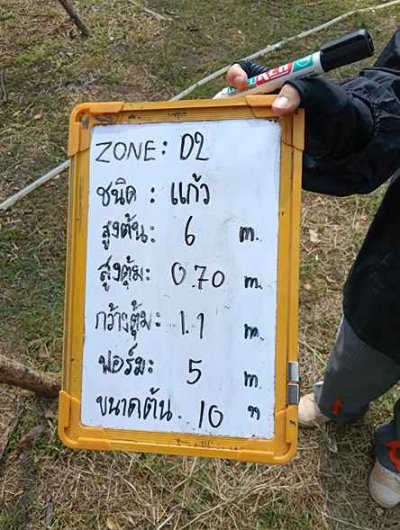 ZONE: D2
ชนิด : แก้ว
สูงต้น: 6 m.
สูงตุ้ม: 0.70 m.
กว้างตุ้ม: 1.1 m.
ฟอร์ม: 5 m.
ขนาดต้น. 10 "